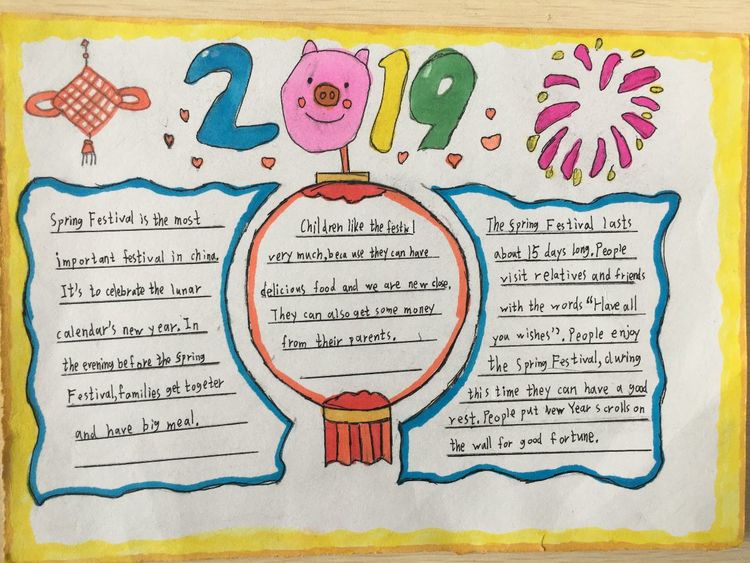 2019
Spring Festival is the most
important festival in china.
It's to celebrate the lunar
calendar's new year. In
the evening before the spring
Festival, families get togeter
and have big meal.
Children like the festival
very much, beca use they can have
delicious food and we are new close.
They can also get some money
from their parents.
The Spring Festival lasts
about 15 days long. People
visit relatives and friends
with the words "Have all
you wishes". People enjoy
the Spring Festival, cluring
this time they can have a good
rest. People put New Year scrolls on
the wall for good fortune.